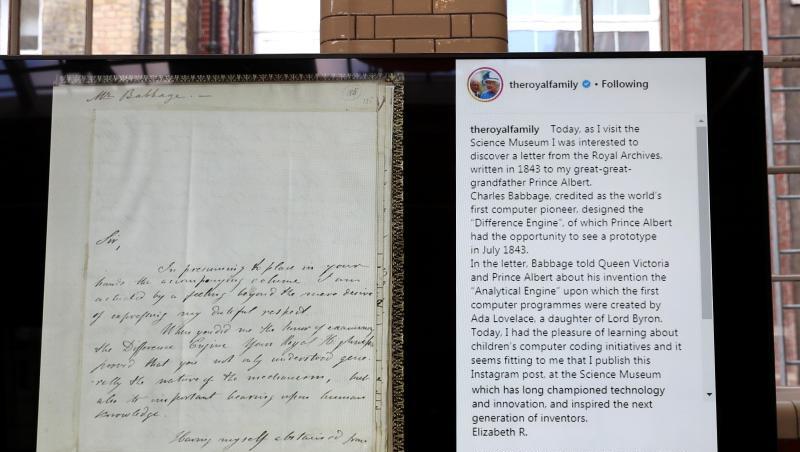 Mr Babbage. —
Sir,
In presuming to place in your
hands the accompanying volume I am
actuated by a feeling beyond the mere desire
of expressing my dutiful respect.
When you did me the honor of examining
the Difference Engine Your Royal Highness
proved that you not only understood gene-
rally the nature of the mechanism, but
also its important bearing upon human
knowledge.
Having myself abstained from
theroyalfamily • Following
theroyalfamily Today, as I visit the
Science Museum I was interested to
discover a letter from the Royal Archives,
written in 1843 to my great-great-
grandfather Prince Albert.
Charles Babbage, credited as the world's
first computer pioneer, designed the
"Difference Engine", of which Prince Albert
had the opportunity to see a prototype
in July 1843.
In the letter, Babbage told Queen Victoria
and Prince Albert about his invention the
"Analytical Engine" upon which the first
computer programmes were created by
Ada Lovelace, a daughter of Lord Byron.
Today, I had the pleasure of learning about
children's computer coding initiatives and it
seems fitting to me that I publish this
Instagram post, at the Science Museum
which has long championed technology
and innovation, and inspired the next
generation of inventors.
Elizabeth R.